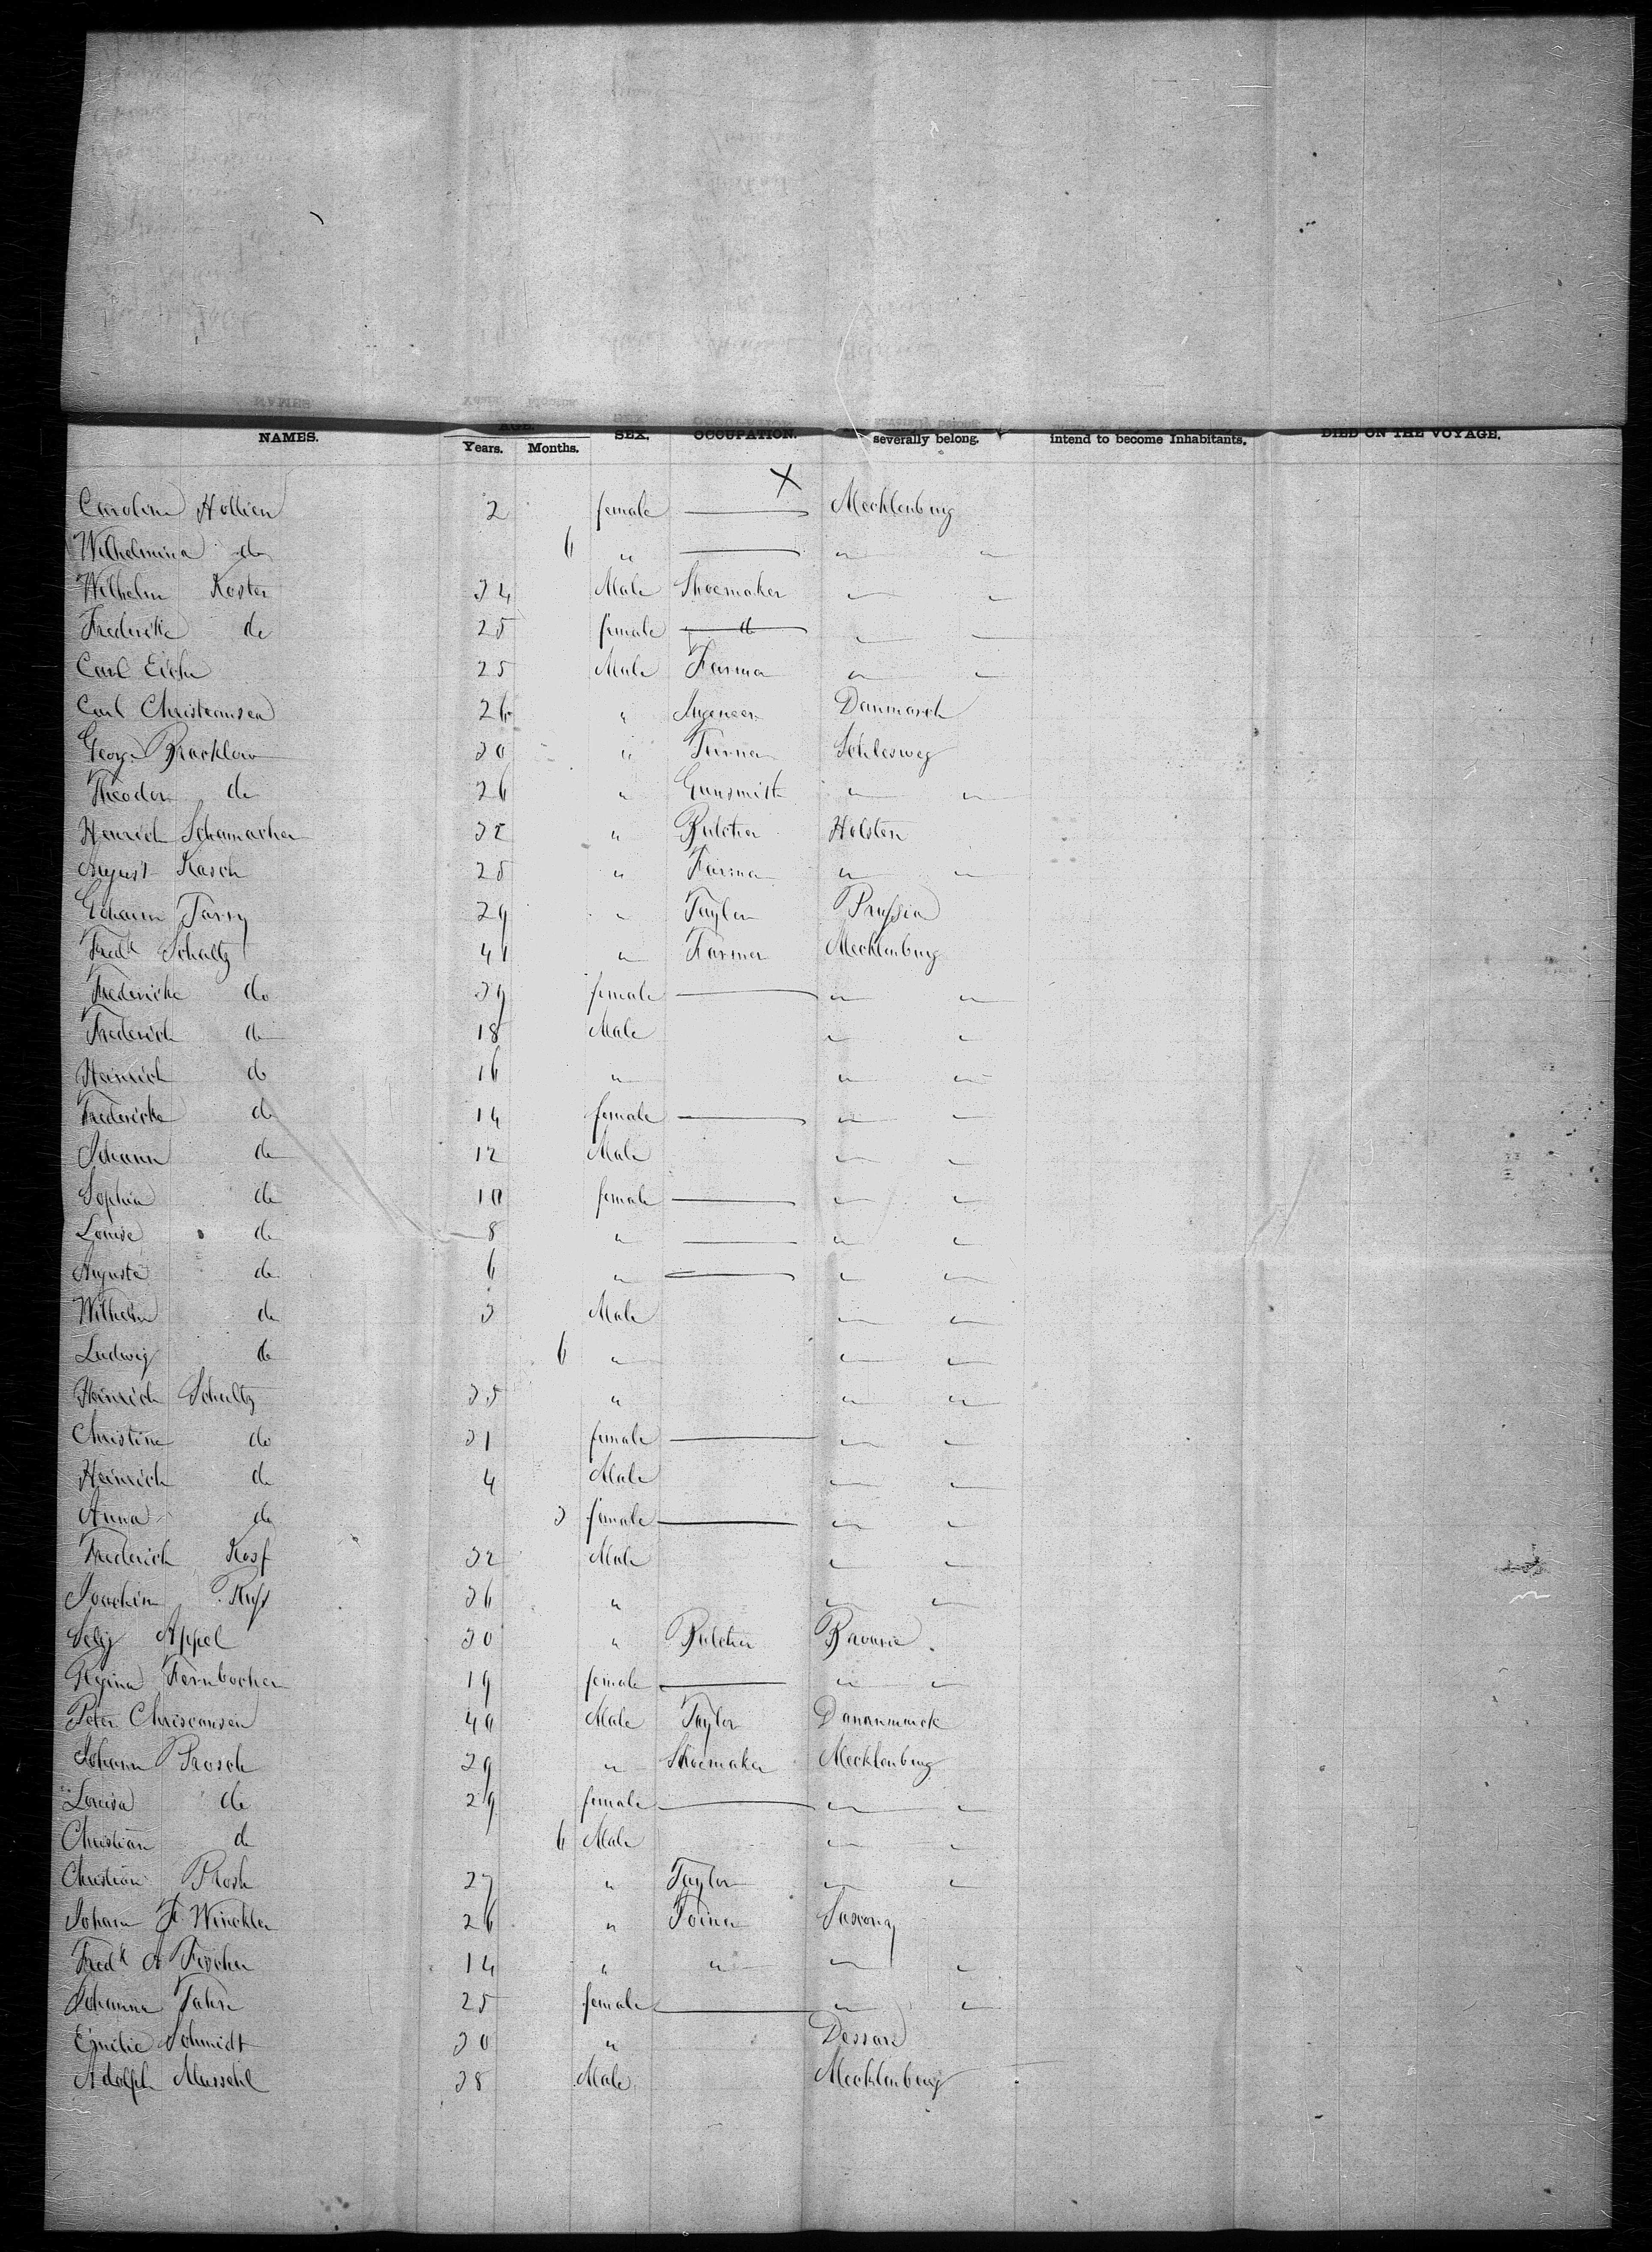 NAMES. AGE. Years. Months. SEX. OCCUPATION. severally belong. intend to become Inhabitants. DIED ON THE VOYAGE.
X
Caroline Hollien 2 female — Mecklenburg
Wilhelmina do 6 " — " "
Wilhelm Koster 34 Male Shoemaker " "
Frederike do 25 female do " "
Carl Eichn 25 Male Farmer " "
Carl Christeansen 26 " Danmarch
George Bracklow 30 " Turner Schleswig
Theodor do 26 " Gunsmith " "
Henrich Schumacher 32 " Butcher Holsten
August Kasch 25 " Farmer " "
Johann 29 " Taylor Prussia
Fredk Schultz 41 " Farmer Mecklenburg
Fredericke do 39 female — " "
Frederich do 18 Male " "
Heinrich do 16 " " "
Fredericke do 14 female — " "
Johann do 12 Male " "
Sophia do 10 female — " "
Louise do 8 " — " "
Auguste do 6 " — " "
Wilhelm do 3 Male " "
Ludwig do 6 " " "
Heinrich Schultz 35 " " "
Christine do 31 female — " "
Heinrich do 4 Male " "
Anna do 3 female — " "
Frederich 32 Male " "
Joachim 36 " " "
Selig Appel 30 " Butcher Bavarie
Regina Fernbacher 19 female — " "
Peter Chriscansen 40 Male Taylor Dananmarck
Johann Prosch 29 " Shoemaker Mecklenburg
Louisa do 29 female — " "
Christian do 6 Male " "
Christian Prosh 27 " Taylor " "
Johann F. Winckler 26 " Joiner Saxony
Fredk A Fischer 14 " " " "
Johanna 25 female — " "
Emilie Schmidt 30 " Dessau
Adolph Mussehl 38 Male Mecklenburg